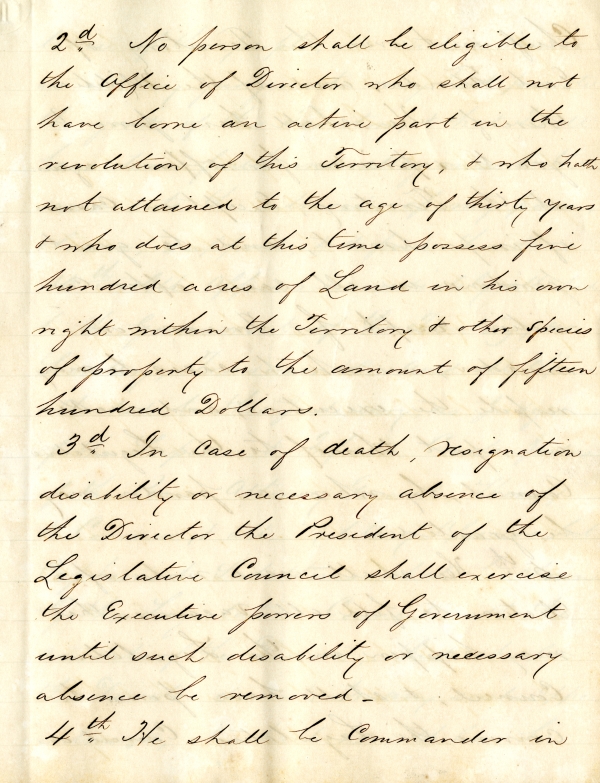 2d No person shall be eligible to
the Office of Director who shall not
have borne an active part in the
revolution of this Territory, & who hath
not attained to the age of thirty years
& who does at this time possess five
hundred acres of Land in his own
right within the Territory & other species
of property to the amount of fifteen
hundred Dollars.
3d In case of death, resignation
disability or necessary absence of
the Director the President of the
Legislative Council shall exercise
the Executive powers of Government
until such disability or necessary
absence be removed -
4th He shall be Commander in